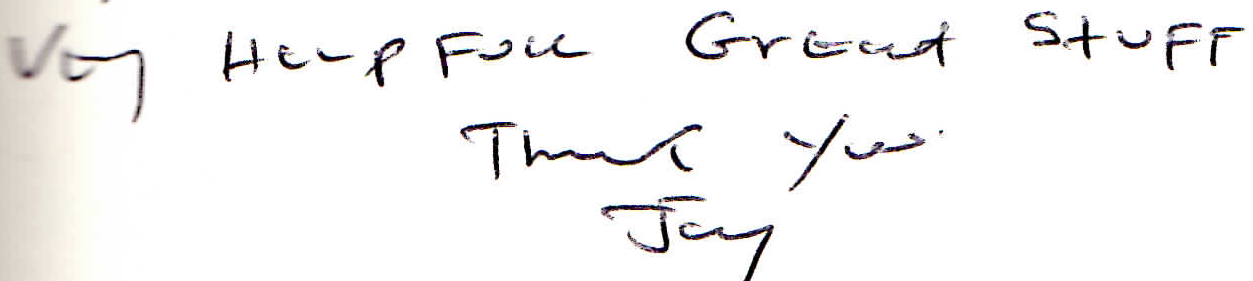 Very HelpFull Great Stuff
Thank You
Jay